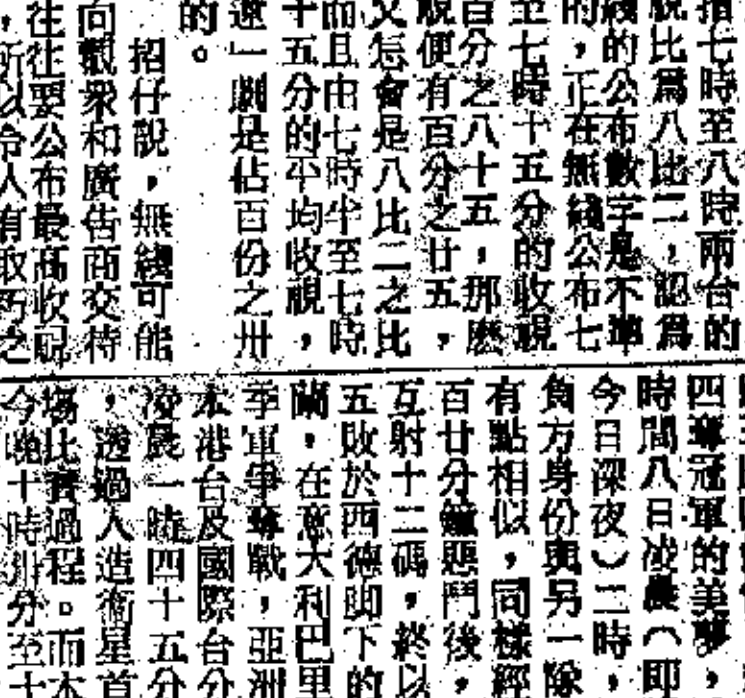 指七時至八時兩台的
視比為八比二，認為
綫的公布數字是不準
的，正在無綫公布七
至七時十五分的收視
百分之八十五，那麽
視便有百分之廿五，
又怎會是八比二之比
而且由七時半至七時
十五分的平均收視，
遠」劇是佔百份之卅
的。
招仔說，無綫可能
向觀衆和廣告商交待
往往要公布最高收視
，所以令人有取巧之
四奪冠軍的美夢，
時間八日凌晨（即
今日深夜）二時，
負方身份與另一隊
有點相似，同樣經
百廿分鐘惡鬥後，
互射十二碼，終以
五敗於西德脚下的
蘭，在意大利巴里
季軍爭奪戰，亞洲
本港台及國際台分
凌晨一時四十五分
，透過人造衞星首
場比賽過程。而本
今晚十時卅分至十